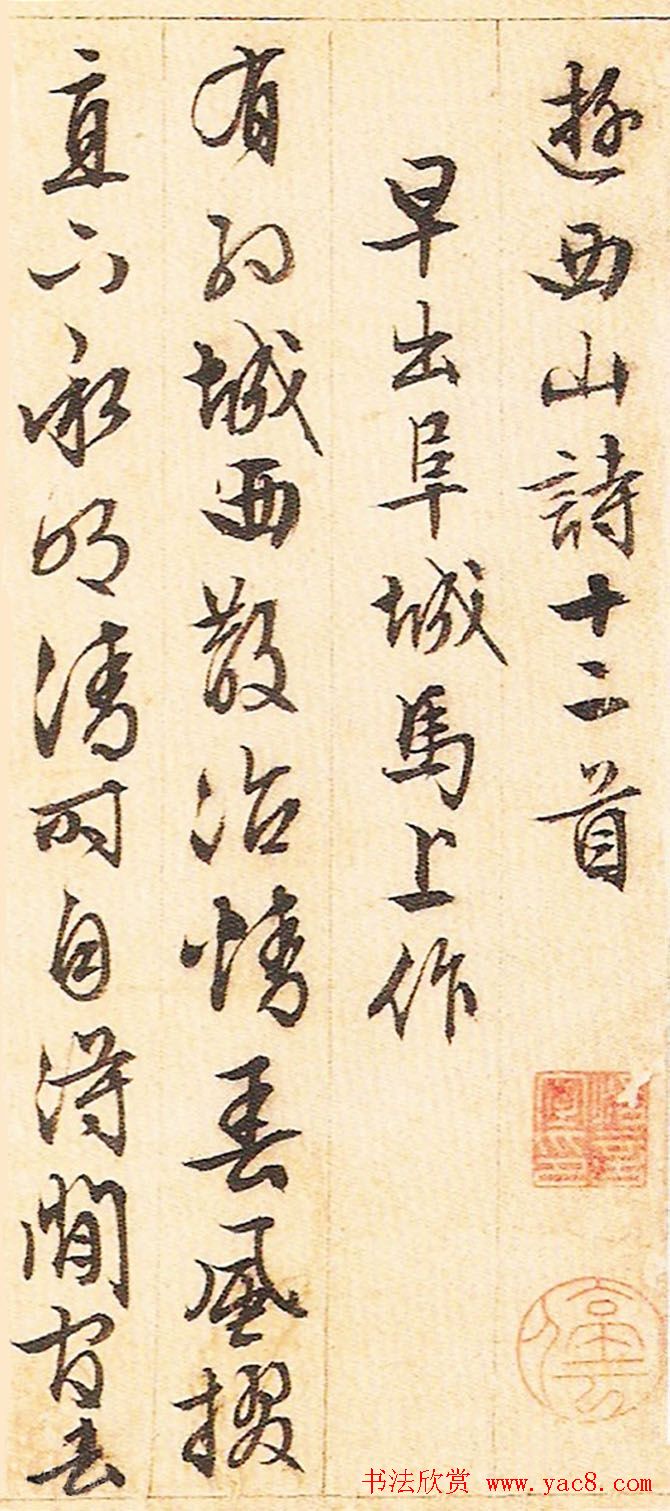 遊西山詩十二首
早出阜城馬上作
有約城西散冶情春風掇
直下承明清時自得閒官去
书法欣赏 www.yac8.com